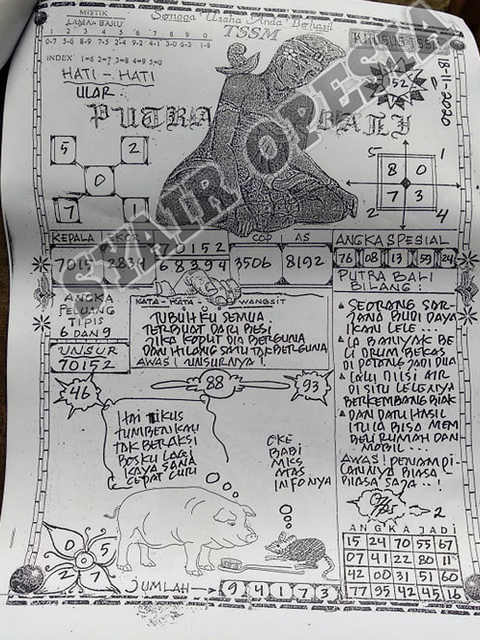 MISTIK
LABAN BARU
1 2 3 4 5 6 7 8 9 0
0-7 5-6 8-9 7-5 2-4 9-2 4-1 3-0 6-3 1-8
INDEX 1=6 2=7 3=8 4=9 5=0
Semoga Usaha Anda Berhasil
TSSM
KHUSUS TSSM
18-11-2020
52
HATI - HATI
ULAR
PUTRA BALI
SYAIR OPESIA
5 2
0
7 1
5 1
8 0
7 3
2 4
KEPALA EKOR 70152 COP AS ANGKA SPESIAL
7015 2834 68394 3506 8192 76 08 13 59 24
ANGKA
PELUANG
TIPIS
6 DAN 9
UNSUR
70152
KATA - KATA WANGSIT
TUBUHKU SEMUA
TERBUAT DARI BESI
JIKA KOPUT DIA BERGUNA
DAN HILANG SATU TAK BERGUNA
AWAS! UNSURNYA!
PUTRA BALI
BILANG:
SEORANG SAR-
JANA BUDI DAYA
IKAN LELE...
IA BANYAK BE
LI DRUM BEKAS
DI POTONG JADI DUA
LALU DIISI AIR
DI SITU LELENYA
BERKEMBANG BIAK
DAN DATU HASIL
ITU IA BISA MEM
BELI RUMAH DAN
MOBIL...
AWAS! PENAMPI-
LANNYA BIASA-
BIASA SAJA..!
46
88
93
HAI TIKUS
TUMBEN KAU
TAK BERAKSI
BOSKU LAGI
KAYA SANA
CEPAT LURU
OKE
BABI
MKS
ATAS
INFONYA
2
ANGKA JADI
15 24 70 55 67
07 41 22 80 11
42 00 31 51 60
77 95 42 45 16
0 5
2 7
JUMLAH → 9 4 1 7 3